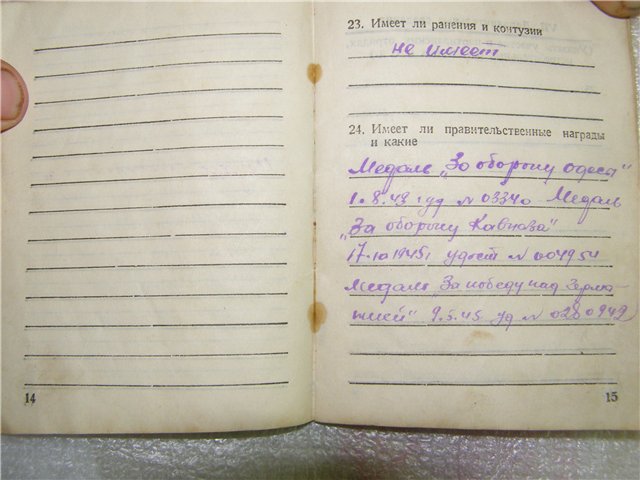 14
23. Имеет ли ранения и контузии
не имеет
24. Имеет ли правительственные награды
и какие
Медаль „За оборону одесы"
1.8.43 год № 03340 Медаль
„За оборону Кавказа"
17.10 1945г удост № 004954
Медаль „За победу над Герма-
нией" 9.5.45 уд № 0280942
15